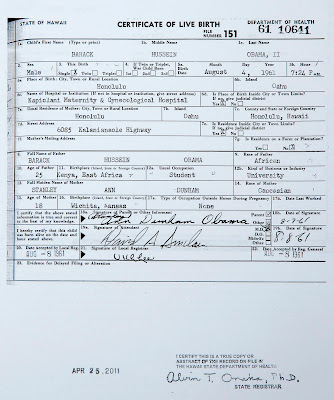 STATE OF HAWAII CERTIFICATE OF LIVE BIRTH DEPARTMENT OF HEALTH
FILE NUMBER 151 61 10641
1a. Child's First Name (Type or print) 1b. Middle Name 1c. Last Name
BARACK HUSSEIN OBAMA, II
2. Sex 3. This Birth 4. If Twin or Triplet, Was Child Born 5a. Birth Date Month Day Year 5b. Hour
Male Single Twin Triplet 1st 2nd 3rd August 4, 1961 7:24 P.M.
6a. Place of Birth: City, Town or Rural Location 6b. Island
Honolulu Oahu
6c. Name of Hospital or Institution (If not in hospital or institution, give street address) 6d. Is Place of Birth Inside City or Town Limits? If no, give judicial district
Kapiolani Maternity & Gynecological Hospital Yes No
7a. Usual Residence of Mother: City, Town or Rural Location 7b. Island 7c. County and State or Foreign Country
Honolulu Oahu Honolulu, Hawaii
7d. Street Address 7e. Is Residence Inside City or Town Limits? If no, give judicial district
6085 Kalanianaole Highway Yes No
7f. Mother's Mailing Address 7g. Is Residence on a Farm or Plantation?
Yes No
8. Full Name of Father 9. Race of Father
BARACK HUSSEIN OBAMA African
10. Age of Father 11. Birthplace (Island, State or Foreign Country) 12a. Usual Occupation 12b. Kind of Business or Industry
25 Kenya, East Africa Student University
13. Full Maiden Name of Mother 14. Race of Mother
STANLEY ANN DUNHAM Caucasian
15. Age of Mother 16. Birthplace (Island, State or Foreign Country) 17a. Type of Occupation Outside Home During Pregnancy 17b. Date Last Worked
18 Wichita, Kansas None
I certify that the above stated information is true and correct to the best of my knowledge. 18a. Signature of Parent or Other Informant Parent Other 18b. Date of Signature
Dunham Obama 8-7-61
I hereby certify that this child was born alive on the date and hour stated above. 19a. Signature of Attendant M.D. D.O. Midwife Other 19b. Date of Signature
David A Sinclair 8-8-61
20. Date Accepted by Local Reg. 21. Signature of Local Registrar 22. Date Accepted by Reg. General
AUG -8 1961 AUG -8 1961
23. Evidence for Delayed Filing or Alteration
APR 25 2011
I CERTIFY THIS IS A TRUE COPY OR
ABSTRACT OF THE RECORD ON FILE IN
THE HAWAII STATE DEPARTMENT OF HEALTH
Alvin T. Onaka, Ph.D.
STATE REGISTRAR